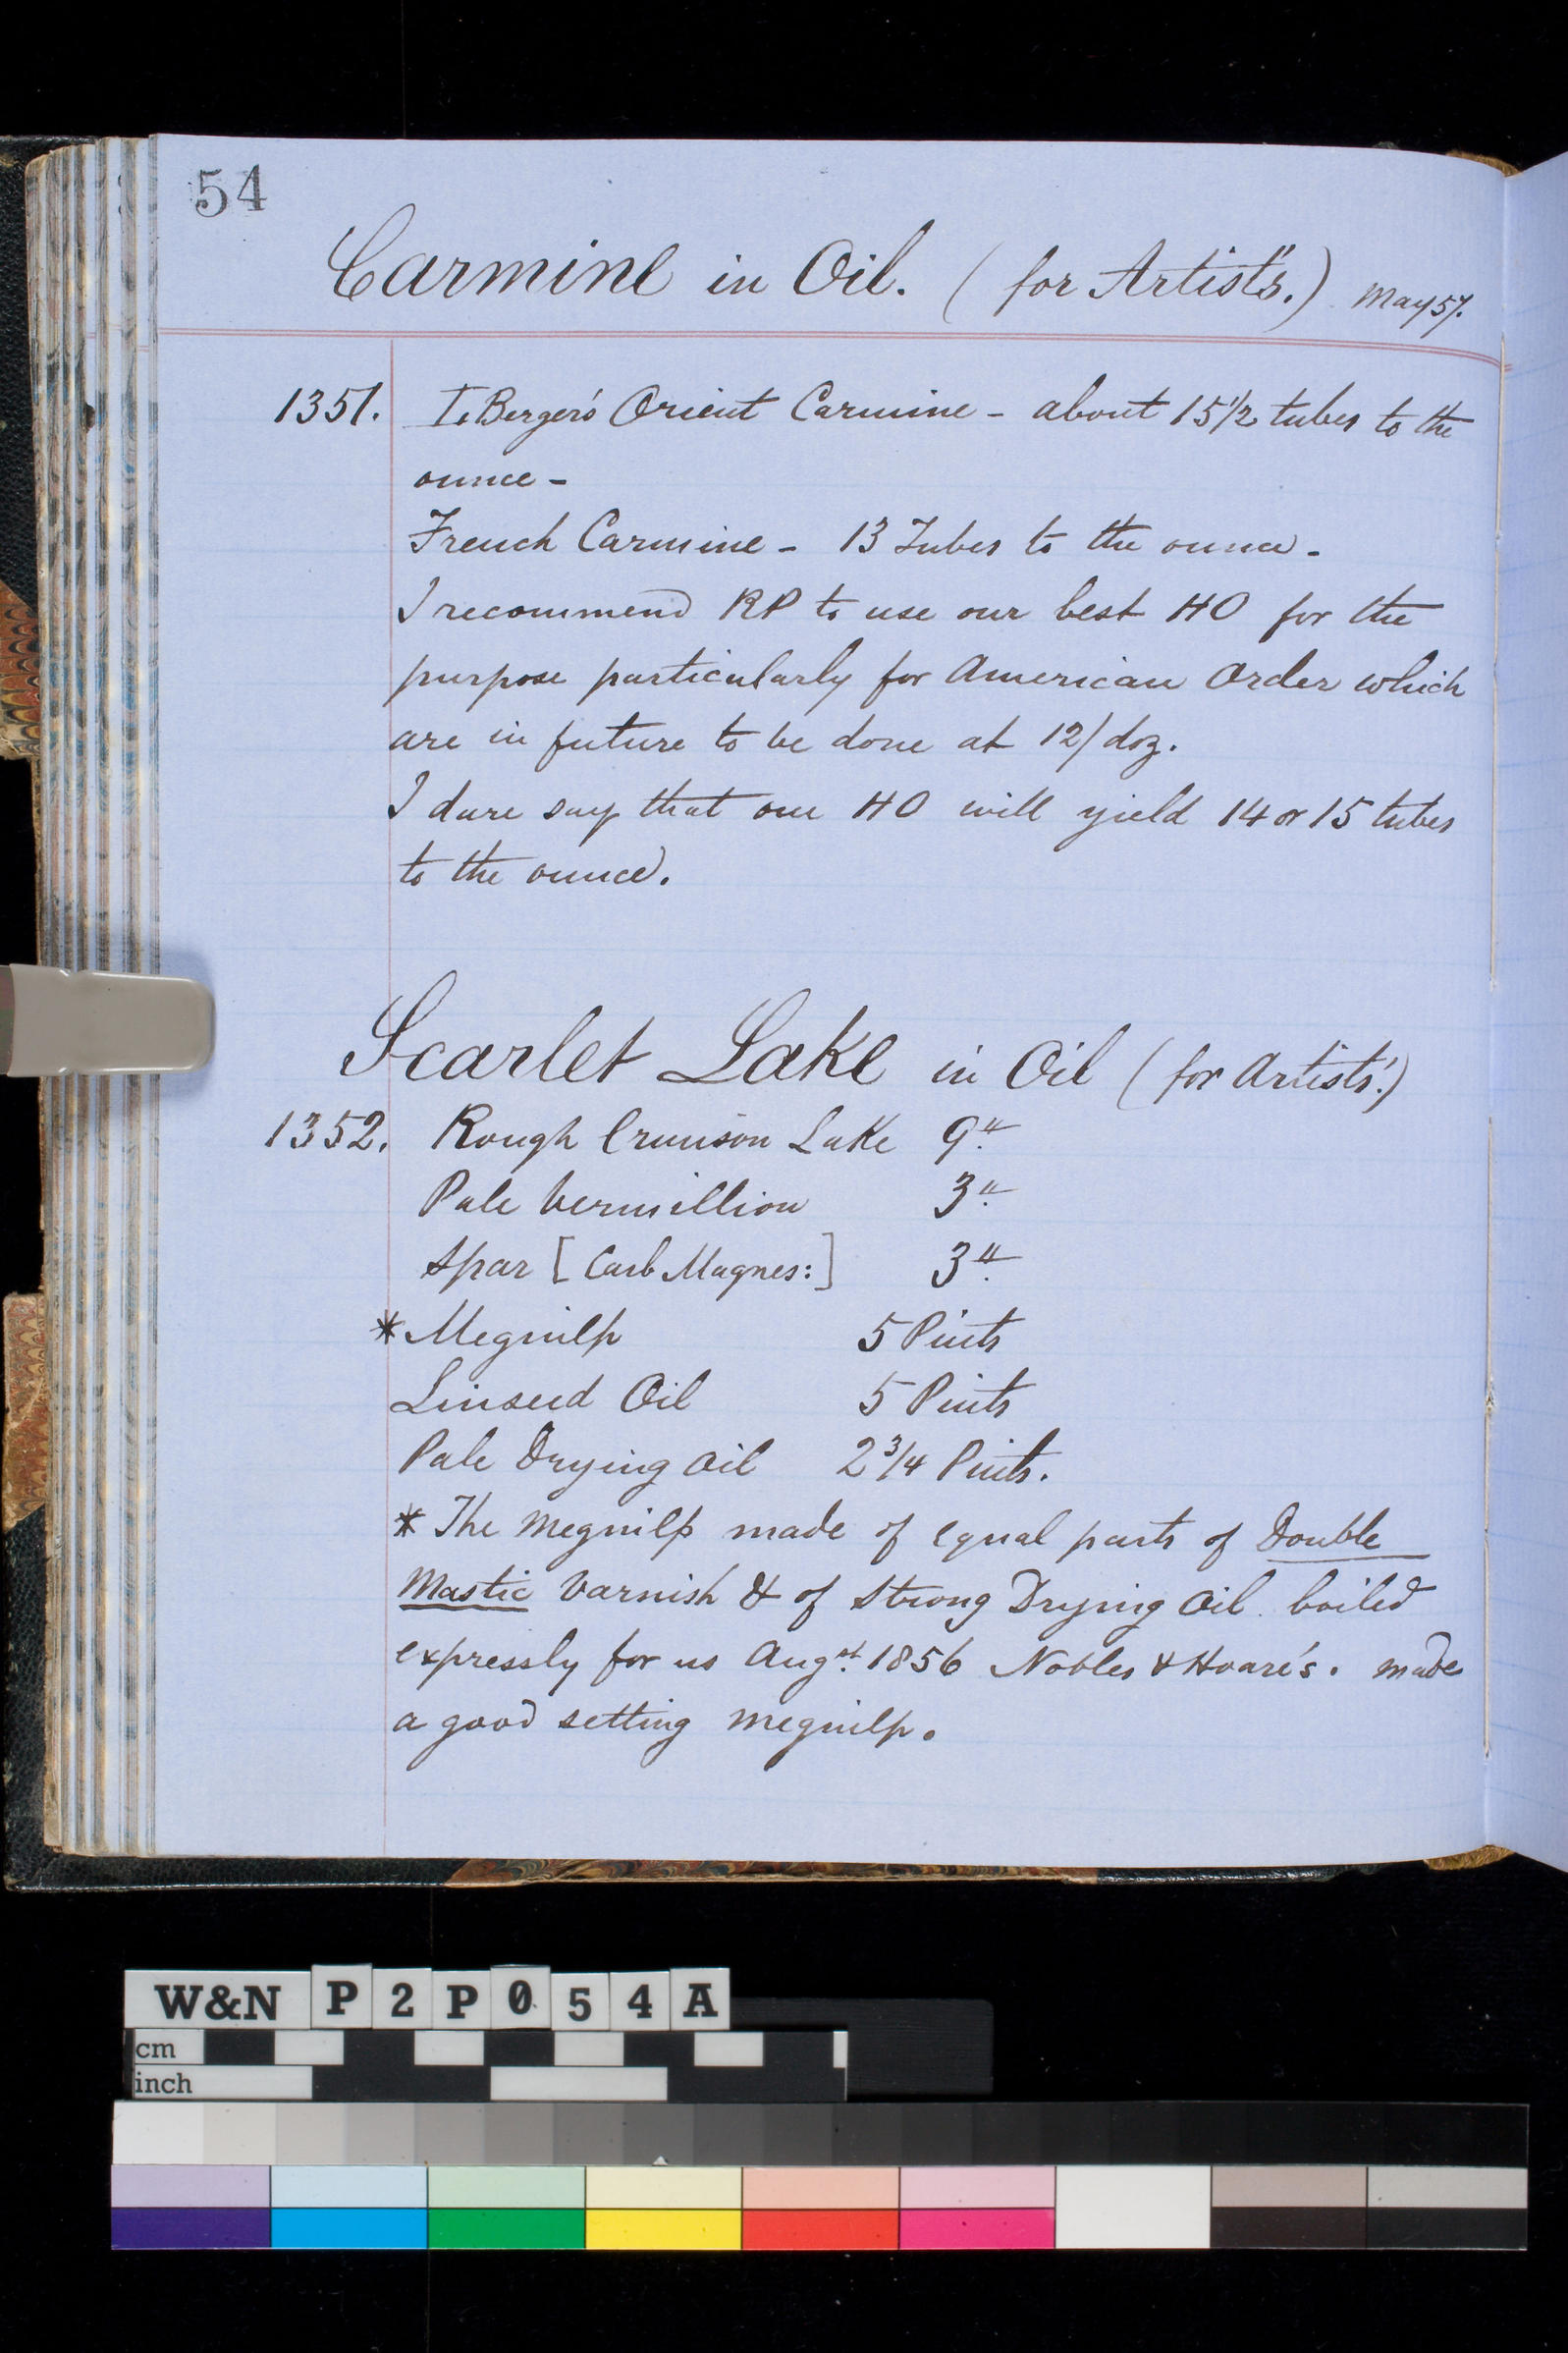 54
Carmine in Oil. (for Artists'.) May 57.
1351. L. Berger's Orient Carmine - about 15 1/2 tubes to the
ounce -
French Carmine - 13 Tubes to the ounce -
I recommend RP to use our best HO for the
purpose particularly for American Order which
are in future to be done at 12/ doz.
I dare say that our HO will yield 14 or 15 tubes
to the ounce.
Scarlet Lake in Oil (for Artists'.)
1352. Rough Crimson Lake 9 "
Pale Vermillion 3 "
Spar [Carb Magnes:] 3 "
* Meguilp 5 Pints
Linseed Oil 5 Pints
Pale Drying Oil 2 3/4 Pints.
* The Meguilp made of equal parts of Double
Mastic Varnish & of Strong Drying Oil boiled
expressly for us Augst. 1856 Nobles & Hoare's. made
a good setting meguilp.
W&N P2P054A
cm
inch